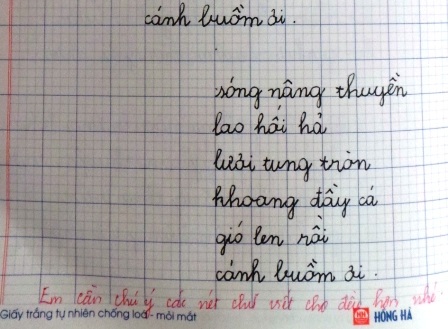 cánh buồm ơi.
sóng nâng thuyền
lao hối hả
lưới tung tròn
khoang đầy cá
gió lên rồi
cánh buồm ơi.
Em cần chú ý các nét chữ viết cho đều hơn nhé.
Giấy trắng tự nhiên chống loá - mỏi mắt
HỒNG HÀ